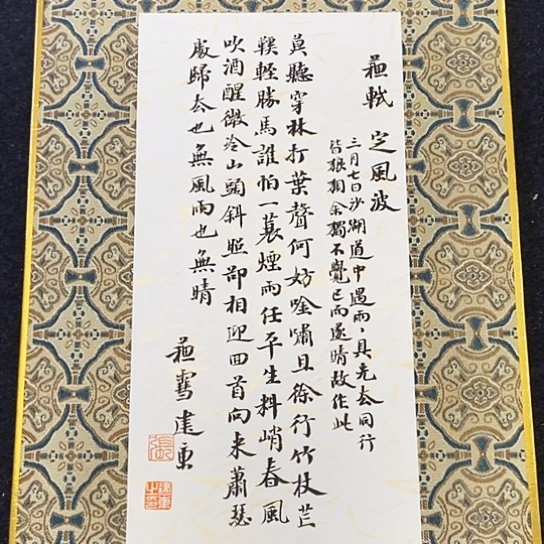 蘓軾 定風波
三月七日沙湖道中遇雨，具先去同行
皆狼狽余獨不覺已而遂晴故作此
莫聽穿林打葉聲何妨唫嘯且徐行竹杖芒
鞵輕勝馬誰怕一蓑煙雨任平生料峭春風
吹酒醒微冷山頭斜照卻相迎回首向來蕭瑟
處歸去也無風雨也無晴
蘓雪建東
張